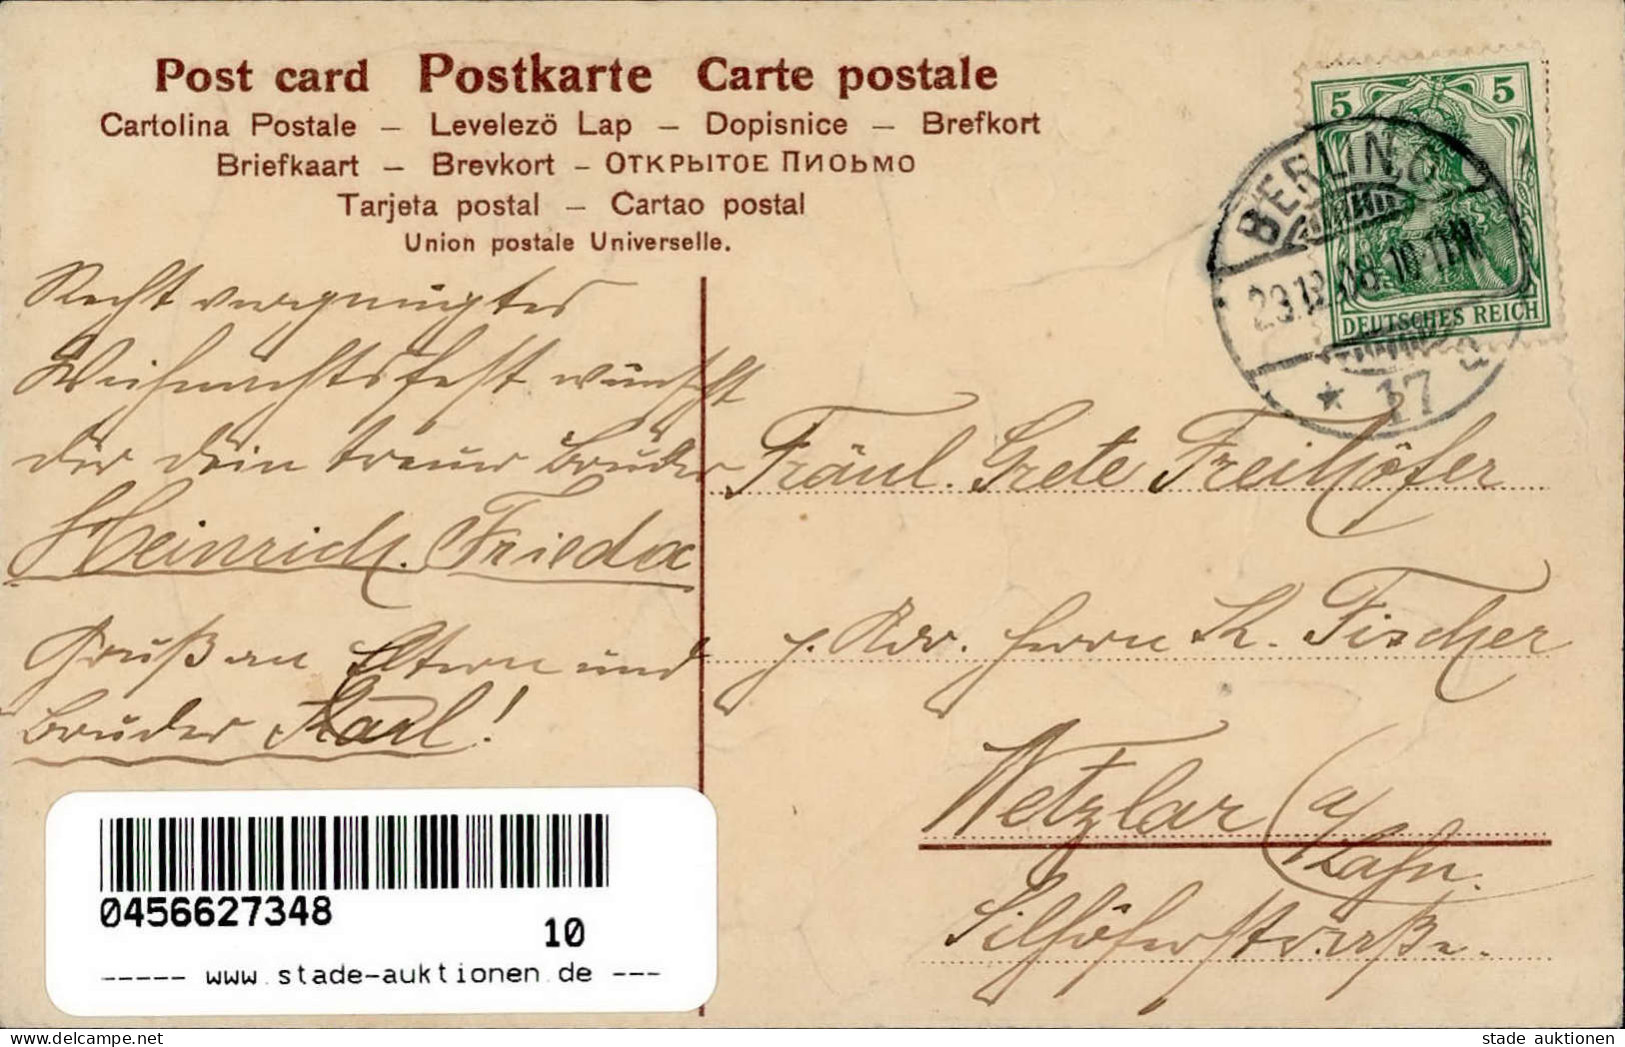 Post card Postkarte Carte postale
Cartolina Postale – Levelező Lap – Dopisnice – Brefkort
Briefkaart – Brevkort – ОТКРЫТОЕ ПИОЬМО
Tarjeta postal – Cartao postal
Union postale Universelle.
5 5
DEUTSCHES REICH
BERLIN
23.12.08. 10-11N
* 17
Recht vergnügtes
Weihnachtsfest wünscht
dir dein treuer Bruder
Heinrich. Frieda
Gruß an Eltern und
Bruder Karl!
Fräul. Grete Freihöfer
p. Adr. Herrn K. Fischer
Wetzlar (a/
Lahn.
Silhöferstraße.
0456627348
10
----- www.stade-auktionen.de ---
stade auktionen